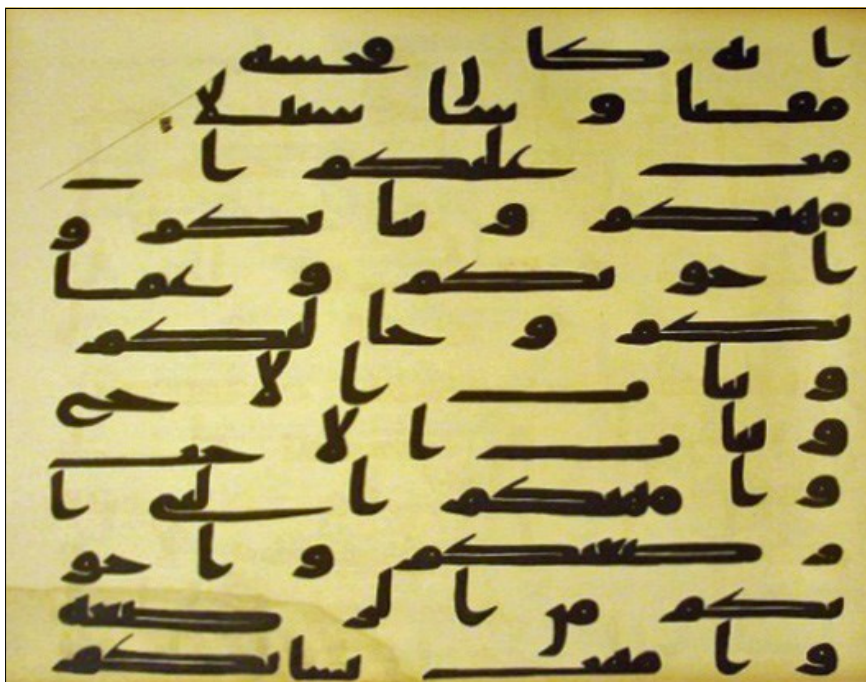 انه كان فحشه
مقتا و سا سبيلا
حرمت عليكم ا
مهتكم و بناتكم و
اخوتكم و عما
تكم و خالتكم
و بنات الاخ
و بنات الاخت
و امهتكم التى ا
رضعنكم و اخو
تكم من الرضعه
و امهت نسائكم